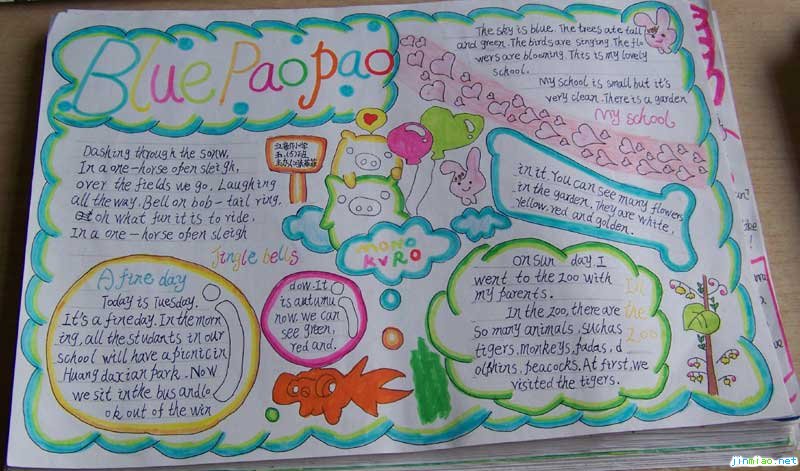 Blue Paopao
The sky is blue. The trees ate tall
and green. The birds are singing. The flo
wers are blooming. This is my lovely
school.
My school is small but it's
very clean. There is a garden
My school
in it. You can see many flowers
in the garden. They are white,
yellow, red and golden.
Dashing through the sonw,
In a one-horse open sleigh,
over the fields we go, Laughing
all the way. Bell on bob-tail ring,
oh what fun it is to ride,
In a one-horse open sleigh
Jingle bells
MONO
KURO
A fine day
Today is Tuesday.
It's a fine day. In the morn
ing, all the studants in our
school will have a picnic in
Huang daxian park. Now
we sit in the bus and lo
ok out of the win
dow. It
is autumu
now. we can
see green,
red and.
On Sun day I
went to the zoo with
my parents.
In the zoo, there are
so many animals, suchas
tigers, monkeys, padas, d
olphins, peacocks. At first, we
visited the tigers.
In
the
Zoo
jinmiao.net